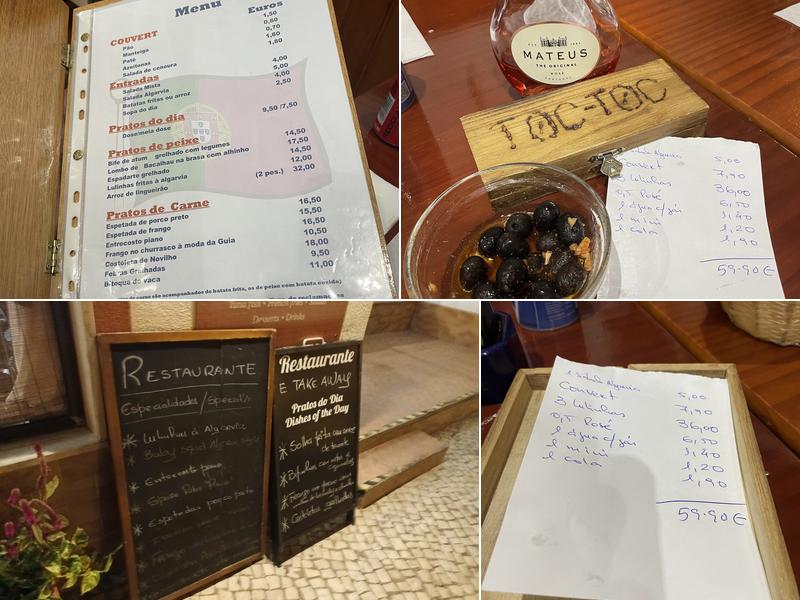 Menu
Euros
COUVERT
Pão 1,50
Manteiga 0,60
Patê 0,70
Azeitonas 1,80
Salada de cenoura 1,80
Entradas
Salada Mista 4,00
Salada Algarvia 5,00
Batatas fritas ou arroz 4,00
Sopa do dia 2,50
Pratos do dia
Dose/meia dose 9,50 /7,50
Pratos de peixe
Bife de atum grelhado com legumes 14,50
Lombo de Bacalhau na brasa com alhinho 17,50
Espadarte grelhado 14,50
Lulinhas fritas à algarvia 12,00
Arroz de lingueirão (2 pes.) 32,00
Pratos de Carne
Espetada de porco preto 16,50
Espetada de frango 15,50
Entrecosto piano 16,50
Frango no churrasco à moda da Guia 10,50
Costoleta de Novilho 18,00
Febras Grelhadas 9,50
Bitoque de vaca 11,00
de carne são acompanhados de batata frita, os de peixe com batata cozida)
de reclamações
MATEUS
THE ORIGINAL
ROSÉ
TOC-TOC
Algarvia 5,00
Couvert 7,90
3 lulinhas 36,00
0,5 Rosé 6,50
1 água c/gás 1,40
1 mini 1,20
1 cola 1,90
59.90€
Desserts • Drinks
RESTAURANTE
Especialidades/Special's
Lulinhas à Algarvia
Baby Squid Algarve Style
Entrecosto piano
Espetada porco preto
Restaurante
E TAKE AWAY
Pratos do Dia
Dishes of the Day
1 Salada Algarvia 5,00
Couvert 7,90
3 lulinhas 36,00
0,5 Rosé 6,50
1 água c/gás 1,40
1 mini 1,20
1 cola 1,90
59.90€